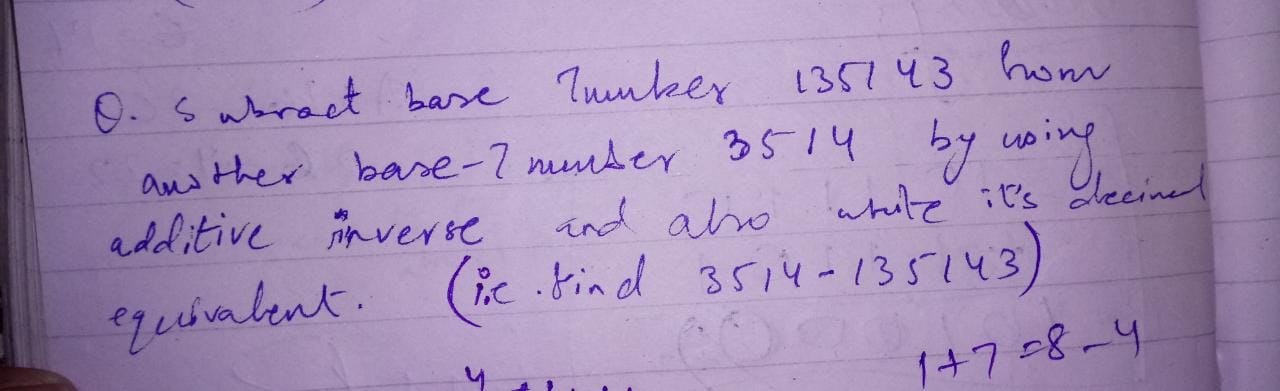 Q. Subract base 7 number 135143 from
another base-7 number 3514 by using
additive inverse and also write it's decimal
equivalent. (i.e. find 3514-135143)
1+7=8-4
4